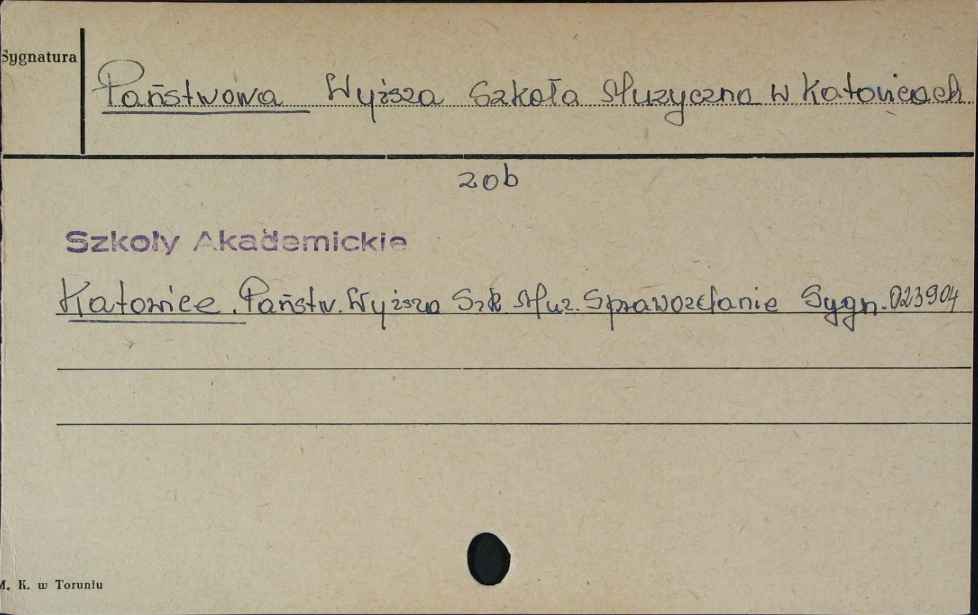 Sygnatura
Państwowa Wyższa Szkoła Muzyczna w Katowicach
zob
Szkoły Akademickie
Katowice. Państw. Wyższa Szk. Muz. Sprawozdanie Sygn. 023904
M. K. w Toruniu